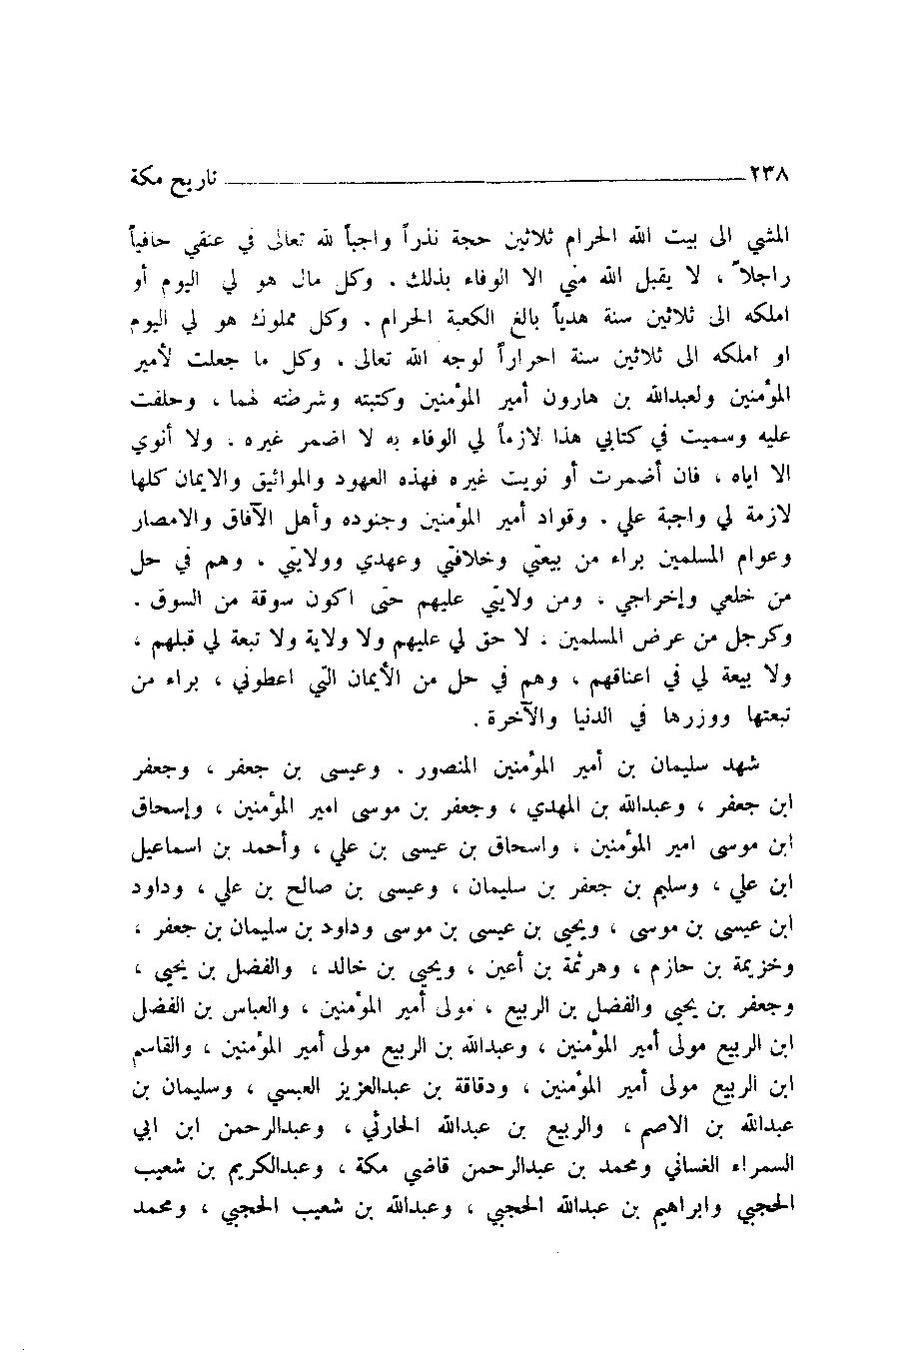 ٢٣٨ تاريخ مكة
المشي الى بيت الله الحرام ثلاثين حجة نذراً واجباً لله تعالى في عنقي حافياً
راجلاً ، لا يقبل الله مني الا الوفاء بذلك . وكل مال هو لي اليوم أو
املكه الى ثلاثين سنة هدياً بالغ الكعبة الحرام . وكل مملوك هو لي اليوم
او املكه الى ثلاثين سنة احراراً لوجه الله تعالى . وكل ما جعلت لأمير
المؤمنين ولعبدالله بن هارون أمير المؤمنين وكتبته وشرطته لهما ، وحلفت
عليه وسميت في كتابي هذا لازماً لي الوفاء به لا اضمر غيره . ولا أنوي
الا اياه ، فان أضمرت أو نويت غيره فهذه العهود والمواثيق والايمان كلها
لازمة لي واجبة علي . وقواد أمير المؤمنين وجنوده وأهل الآفاق والامصار
وعوام المسلمين براء من بيعتي وخلافتي وعهدي وولايتي . وهم في حل
من خلعي وإخراجي . ومن ولايتي عليهم حتى اكون سوقة من السوق .
وكرجل من عرض المسلمين . لا حق لي عليهم ولا ولاية ولا تبعة لي قبلهم ،
ولا بيعة لي في اعناقهم ، وهم في حل من الأيمان التي اعطوني ، براء من
تبعتها ووزرها في الدنيا والآخرة .
شهد سليمان بن أمير المؤمنين المنصور . وعيسى بن جعفر ، وجعفر
ابن جعفر ، وعبدالله بن المهدي ، وجعفر بن موسى امير المؤمنين ، وإسحاق
ابن موسى امير المؤمنين ، واسحاق بن عيسى بن علي ، وأحمد بن اسماعيل
ابن علي ، وسليم بن جعفر بن سليمان ، وعيسى بن صالح بن علي ، وداود
ابن عيسى بن موسى ، ويحيى بن عيسى بن موسى وداود بن سليمان بن جعفر ،
وخزيمة بن حازم ، وهرثمة بن أعين ، ويحيى بن خالد ، والفضل بن يحيى ،
وجعفر بن يحيى والفضل بن الربيع ، مولى أمير المؤمنين ، والعباس بن الفضل
ابن الربيع مولى أمير المؤمنين ، وعبدالله بن الربيع مولى أمير المؤمنين ، والقاسم
ابن الربيع مولى أمير المؤمنين ، ودقاقة بن عبدالعزيز العبسي ، وسليمان بن
عبدالله بن الاصم ، والربيع بن عبدالله الحارثي ، وعبدالرحمن ابن ابي
السمراء الغساني ومحمد بن عبدالرحمن قاضي مكة ، وعبدالكريم بن شعيب
الحجبي وابراهيم بن عبدالله الحجبي ، وعبدالله بن شعيب الحجبي ، ومحمد